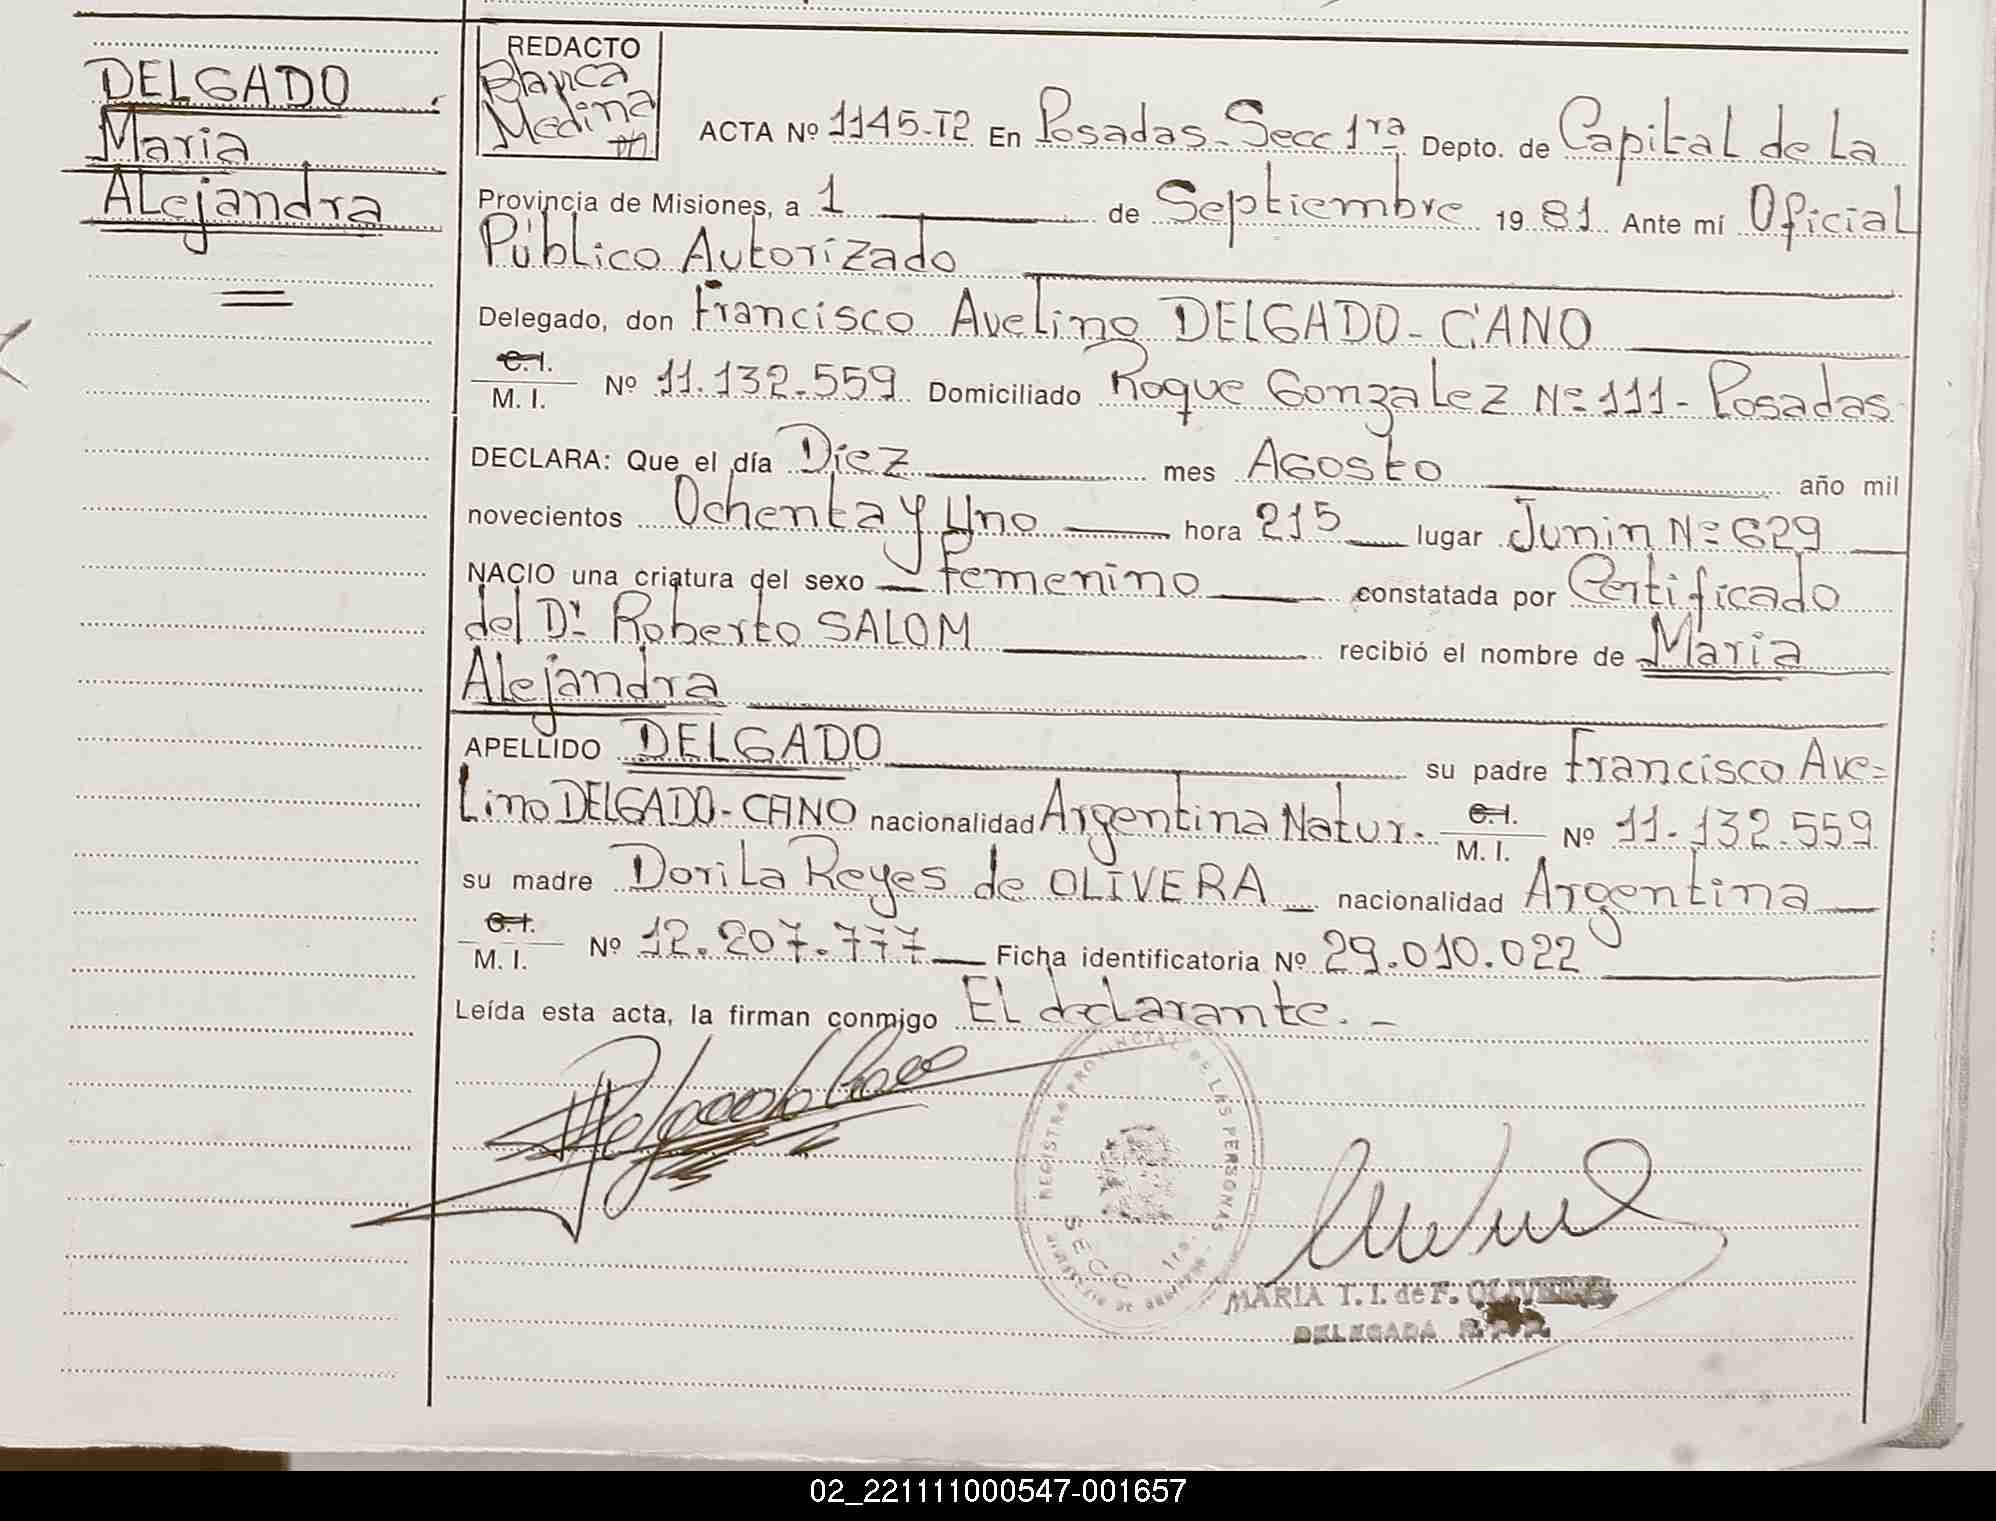 DELGADO
Maria
ALejandra
REDACTO
Blanca
Medina
ACTA Nº 1145-T2 En Posadas-Secc 1ra Depto. de Capital de La
Provincia de Misiones, a 1 de Septiembre 1981 Ante mí Oficial
Público Autorizado
Delegado, don Francisco Avelino DELGADO-CANO
C.I.
M. I. Nº 11.132.559 Domiciliado Roque Gonzalez Nº 111- Posadas
DECLARA: Que el día Diez mes Agosto año mil
novecientos Ochenta y Uno hora 215 lugar Junin Nº 629
NACIO una criatura del sexo Femenino constatada por Certificado
del Dr. Roberto SALOM recibió el nombre de Maria
ALejandra
APELLIDO DELGADO su padre Francisco Ave=
Lino DELGADO-CANO nacionalidad Argentina Natur. C.I.
M. I. Nº 11.132.559
su madre DoriLa Reyes de OLIVERA nacionalidad Argentina
C.I.
M. I. Nº 12.207.777 Ficha identificatoria Nº 29.010.022
Leída esta acta, la firman conmigo EL declarante.-
Delgado Cano
REGISTRO PROVINCIAL DE LAS PERSONAS
SECC 1ra.
MARIA T. I. de F. OLIVERA
DELEGADA
02_221111000547-001657